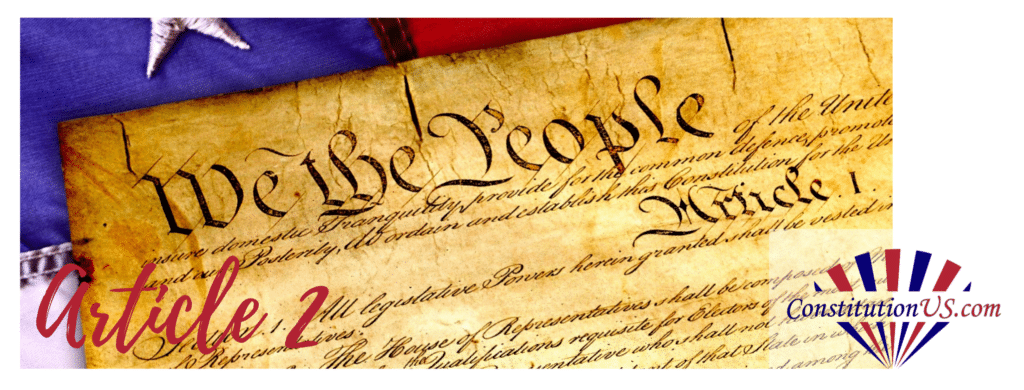 We the People of the Unite
insure domestic Tranquility, provide for the common defence, promote
and our Posterity, do ordain and establish this Constitution for the Un
Article. I.
Section. 1. All legislative Powers herein granted shall be vested in
to Representatives.
The House of Representatives shall be composed of
Qualifications requisite for Electors of the most
Representative who shall not have
of that State in wh
Article 2
ConstitutionUS.com